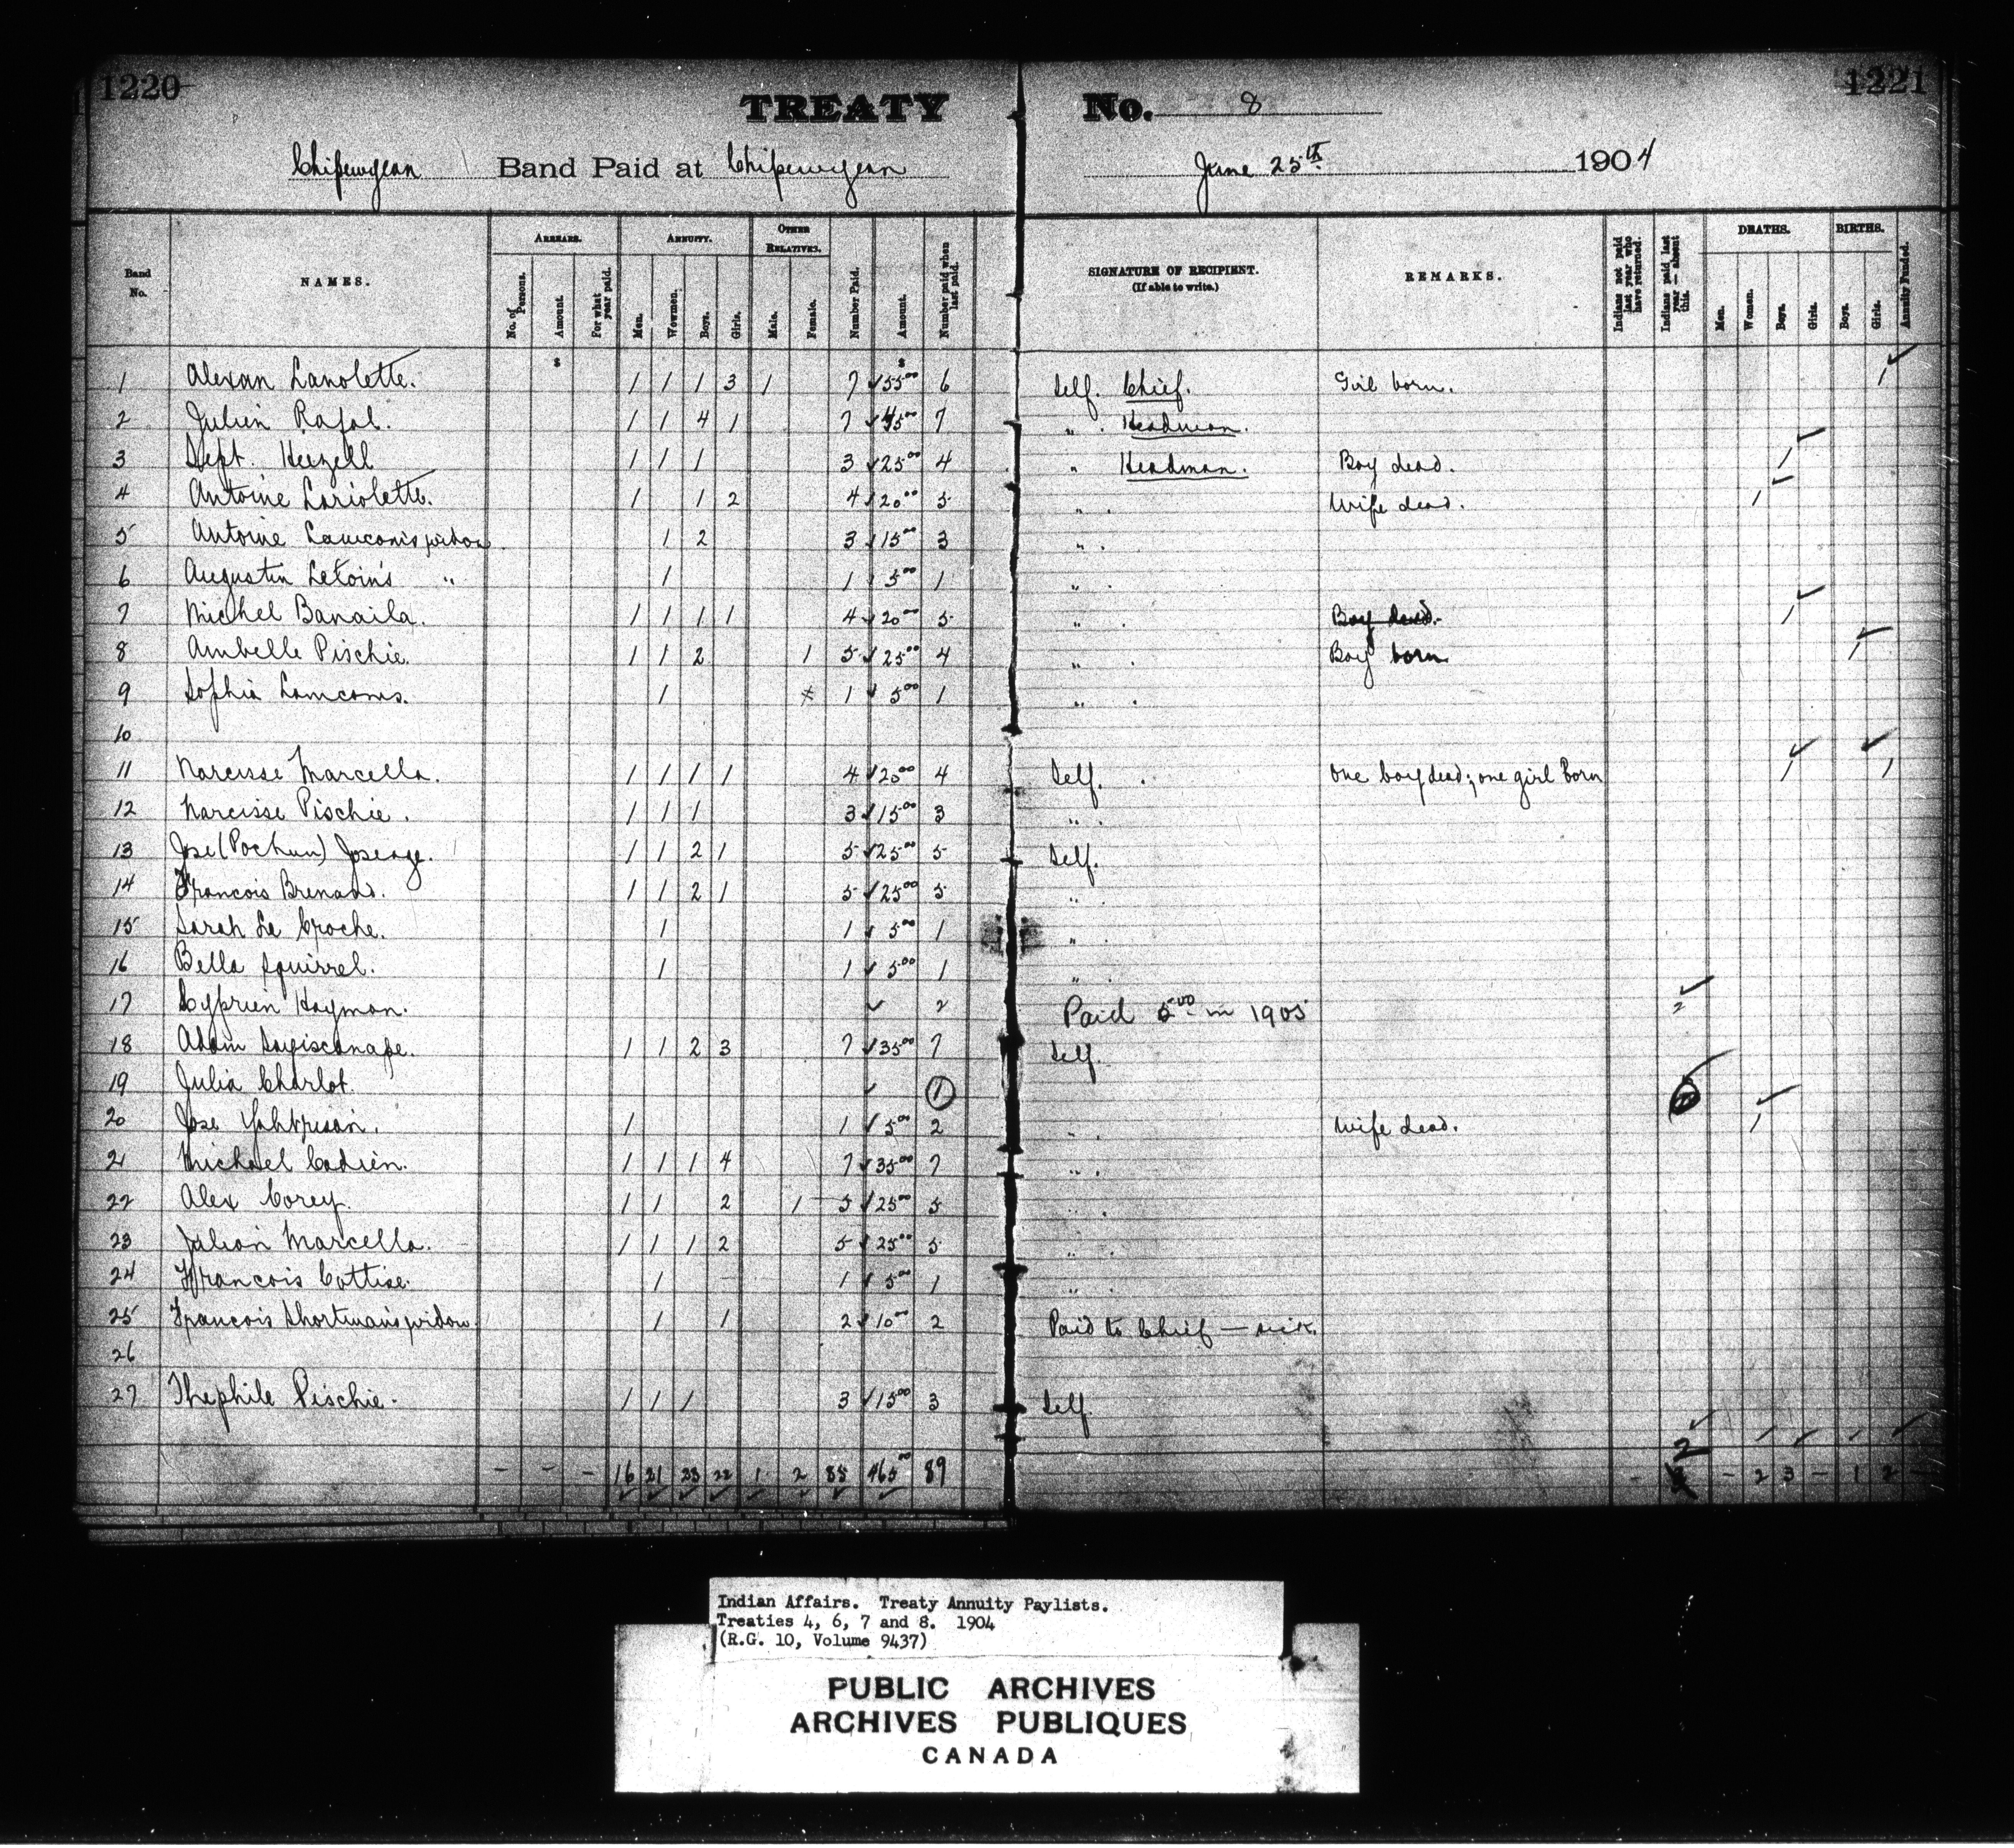 1220 1221
TREATY No. 8
Chipewyan Band Paid at Chipewyan June 25th 1904
Band No. NAMES. ARREARS. No. of Persons. Amount. For what year paid. ANNUITY. Men. Wowmen. Boys. Girls. OTHER RELATIVES. Male. Female. Number Paid. Amount. Number paid when last paid. SIGNATURE OF RECIPIENT. (If able to write.) REMARKS. Indians not paid last year who have returned. Indians paid last year — absent this. DEATHS. Men. Women. Boys. Girls. BIRTHS. Boys. Girls. Annuity Funded.
$ $
1 Alexan Lanolette. 1 1 1 3 1 7 ✓ 55 00 6 Self. Chief. Girl born. 1 ✓
2 Julien Rafal. 1 1 4 1 7 ✓ 45 00 7 " Headman.
3 Sept. Heezell 1 1 1 3 ✓ 25 00 4 " Headman. Boy dead. 1 ✓
4 Antoine Lariolette. 1 1 2 4 ✓ 20 00 5 " Wife dead. 1 ✓
5 Antoine widow 1 2 3 ✓ 15 00 3 "
6 Augustin Letoin's " 1 1 ✓ 5 00 1 "
7 Michel Banaila. 1 1 1 1 4 ✓ 20 00 5 " Boy dead. 1 ✓
8 Ambelle Pischie. 1 1 2 1 5 ✓ 25 00 4 " Boy born 1 ✓
9 Sophia Lamconis. 1 1 ✓ 5 00 1 "
10
11 Narcisse Marcella. 1 1 1 1 4 ✓ 20 00 4 Self. One boy dead; one girl born 1 ✓ 1 ✓
12 Narcisse Pischie. 1 1 1 3 ✓ 15 00 3 "
13 Jose (Pochun) 1 1 2 1 5 ✓ 25 00 5 Self.
14 Francois Brenard. 1 1 2 1 5 ✓ 25 00 5 "
15 Sarah La Croche. 1 1 ✓ 5 00 1 "
16 Bella Squirrel. 1 1 ✓ 5 00 1 "
17 Cyprien Hayman. ✓ 2 Paid 5 00 in 1905 2 ✓
18 Adam 1 1 2 3 7 ✓ 35 00 7 Self.
19 Julia Charlot. ✓ 1
20 Jose 1 1 ✓ 5 00 2 " Wife dead. 1 ✓
21 Michael Cadien. 1 1 1 4 7 ✓ 35 00 7 "
22 Alex Corey. 1 1 2 1 5 ✓ 25 00 5 "
23 Julian Marcella. 1 1 1 2 5 ✓ 25 00 5 "
24 Francois Cattise. 1 1 ✓ 5 00 1 "
25 Francois Shortman's widow. 1 1 2 ✓ 10 00 2 Paid to Chief — sick.
26
27 Thephile Pischie. 1 1 1 3 ✓ 15 00 3 Self.
2
- - - 16 21 23 22 1 2 85 465 00 89 - - 2 3 - 1 2
Indian Affairs. Treaty Annuity Paylists.
Treaties 4, 6, 7 and 8. 1904
(R.G. 10, Volume 9437)
PUBLIC ARCHIVES
ARCHIVES PUBLIQUES
CANADA